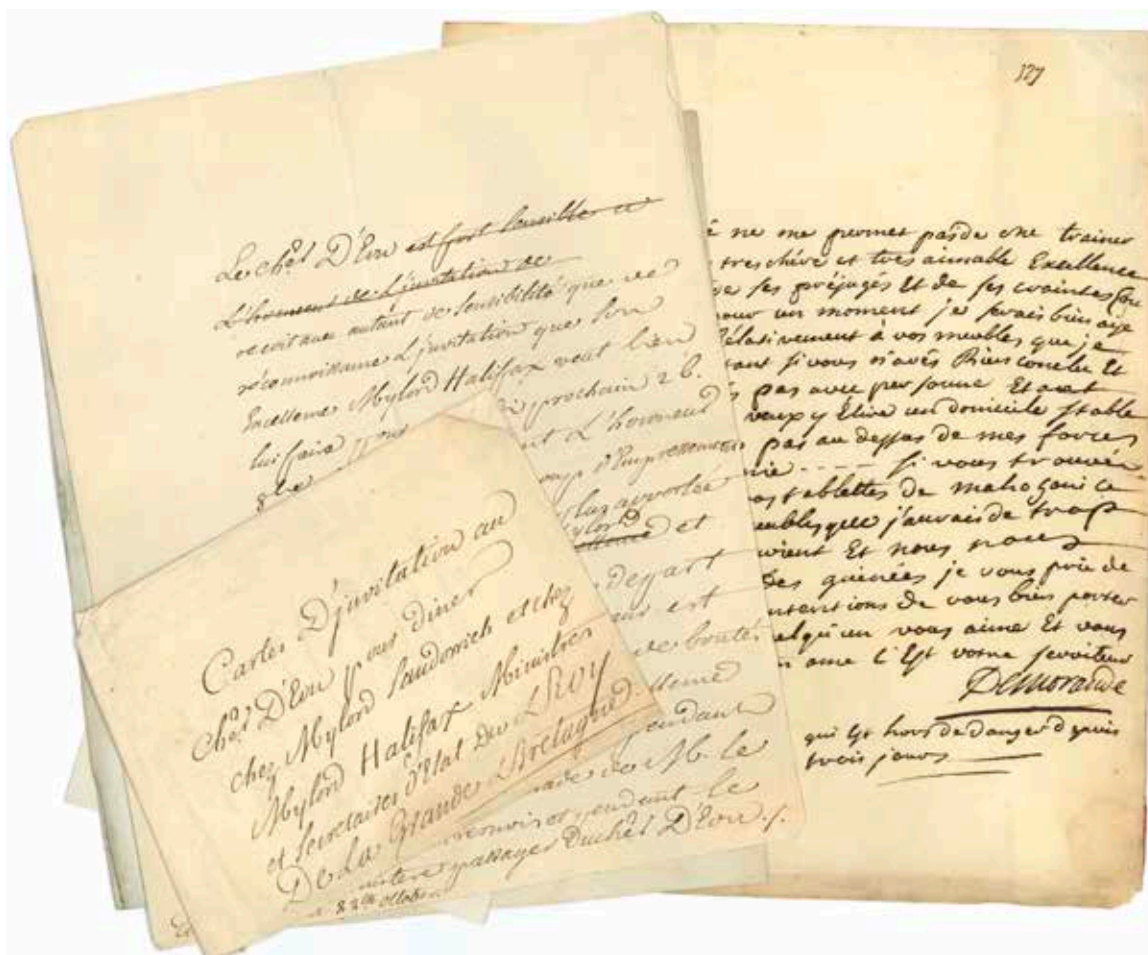 Le Chēr D'Eon est fort sensible a
L'honneur de L'invitation de
reçoit avec autant de sensibilité que de
réconnoissance L'jnvitation que Son
Excellence Mylord Halifax veut bien
lui faire pour prochain 26.
8bre L'honneur
d'Empressement
Mylord
et
Depart
est
de bontés
pendant
M. le
pendant le
passage Du chēr D'Eon ./.
Cartes D'jnvitation au
Chēr D'Eon pour Diner
chez Mylord Sandowich et chez
Mylord Halifax Ministres
et Secretaires d'Etat Du Roy
De La Grande Bretagne.
octobre
127
é ne me permet pas de me trainer
tres chére et tres aimable Excellence
de ses préjugés Et de ses craintes
pour un moment je serais bien aise
Rélativement à vos meubles que je
tant si vous n'avés Rien conclu Et
pas avec personne Et avet
veux y Elire un domicile stable
pas au dessus de mes forces
nie ---- si vous trouvéz
vos tablettes de mahogani ce
meubles que j'aurais de trop
vient Et nous
Des guinées je vous prie de
intentions De vous bien porter
quelqu'un vous aime Et vous
ame C'Est votre serviteur
DeMorande
qui Est hors de danger depuis
trois jours